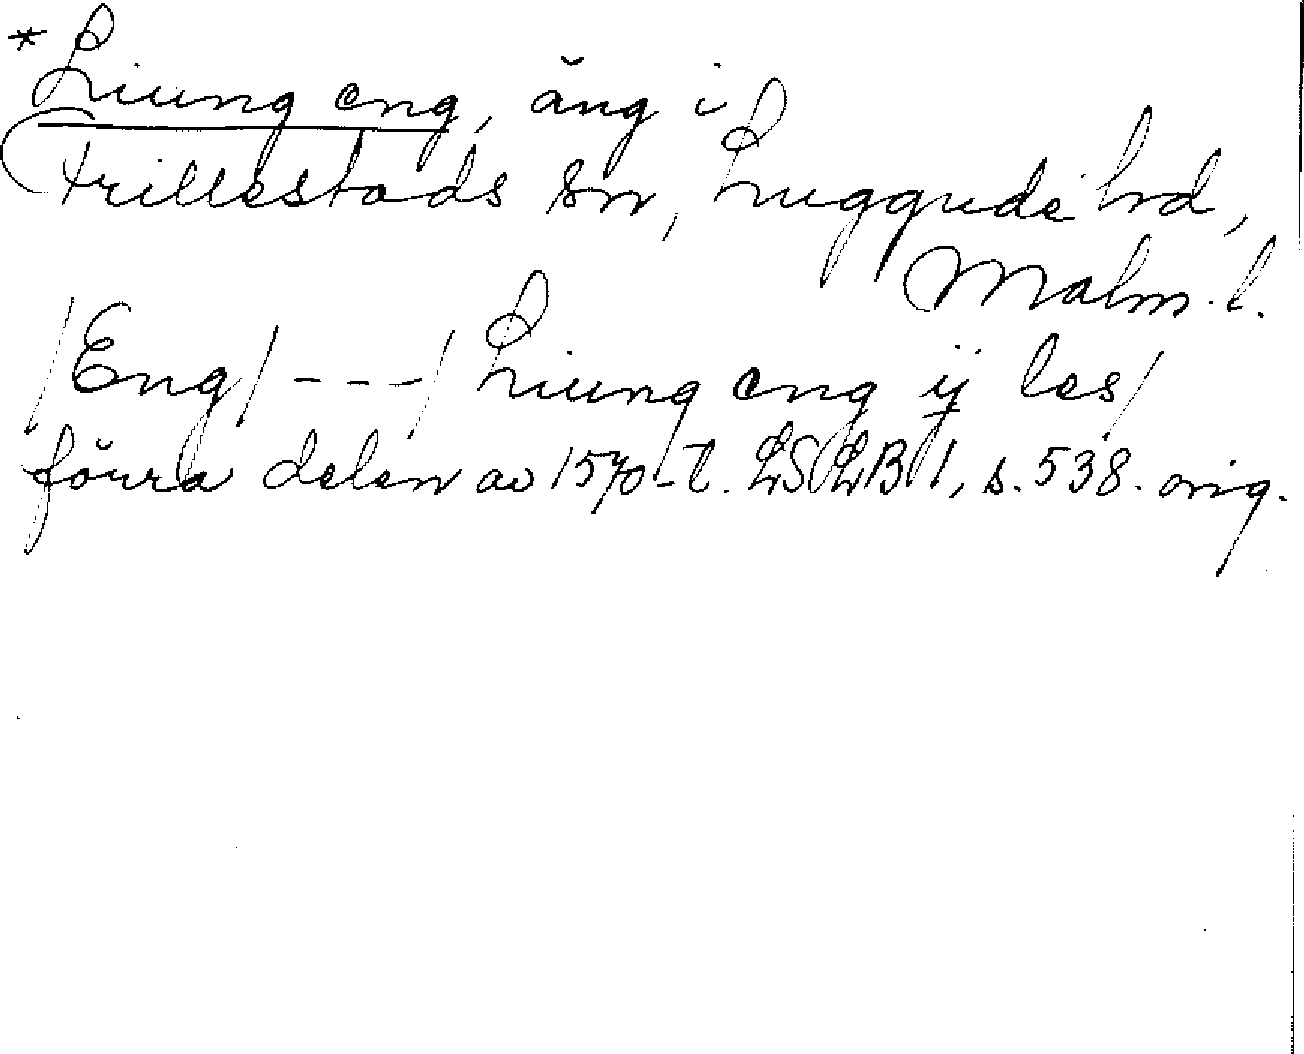 * Liung eng, äng i
Frillestads sn, Luggude hd,
Malm. l.
/Eng/ - - - / Liung eng ij les/
förra delen av 1570-t. LSLB I, s. 538. orig.